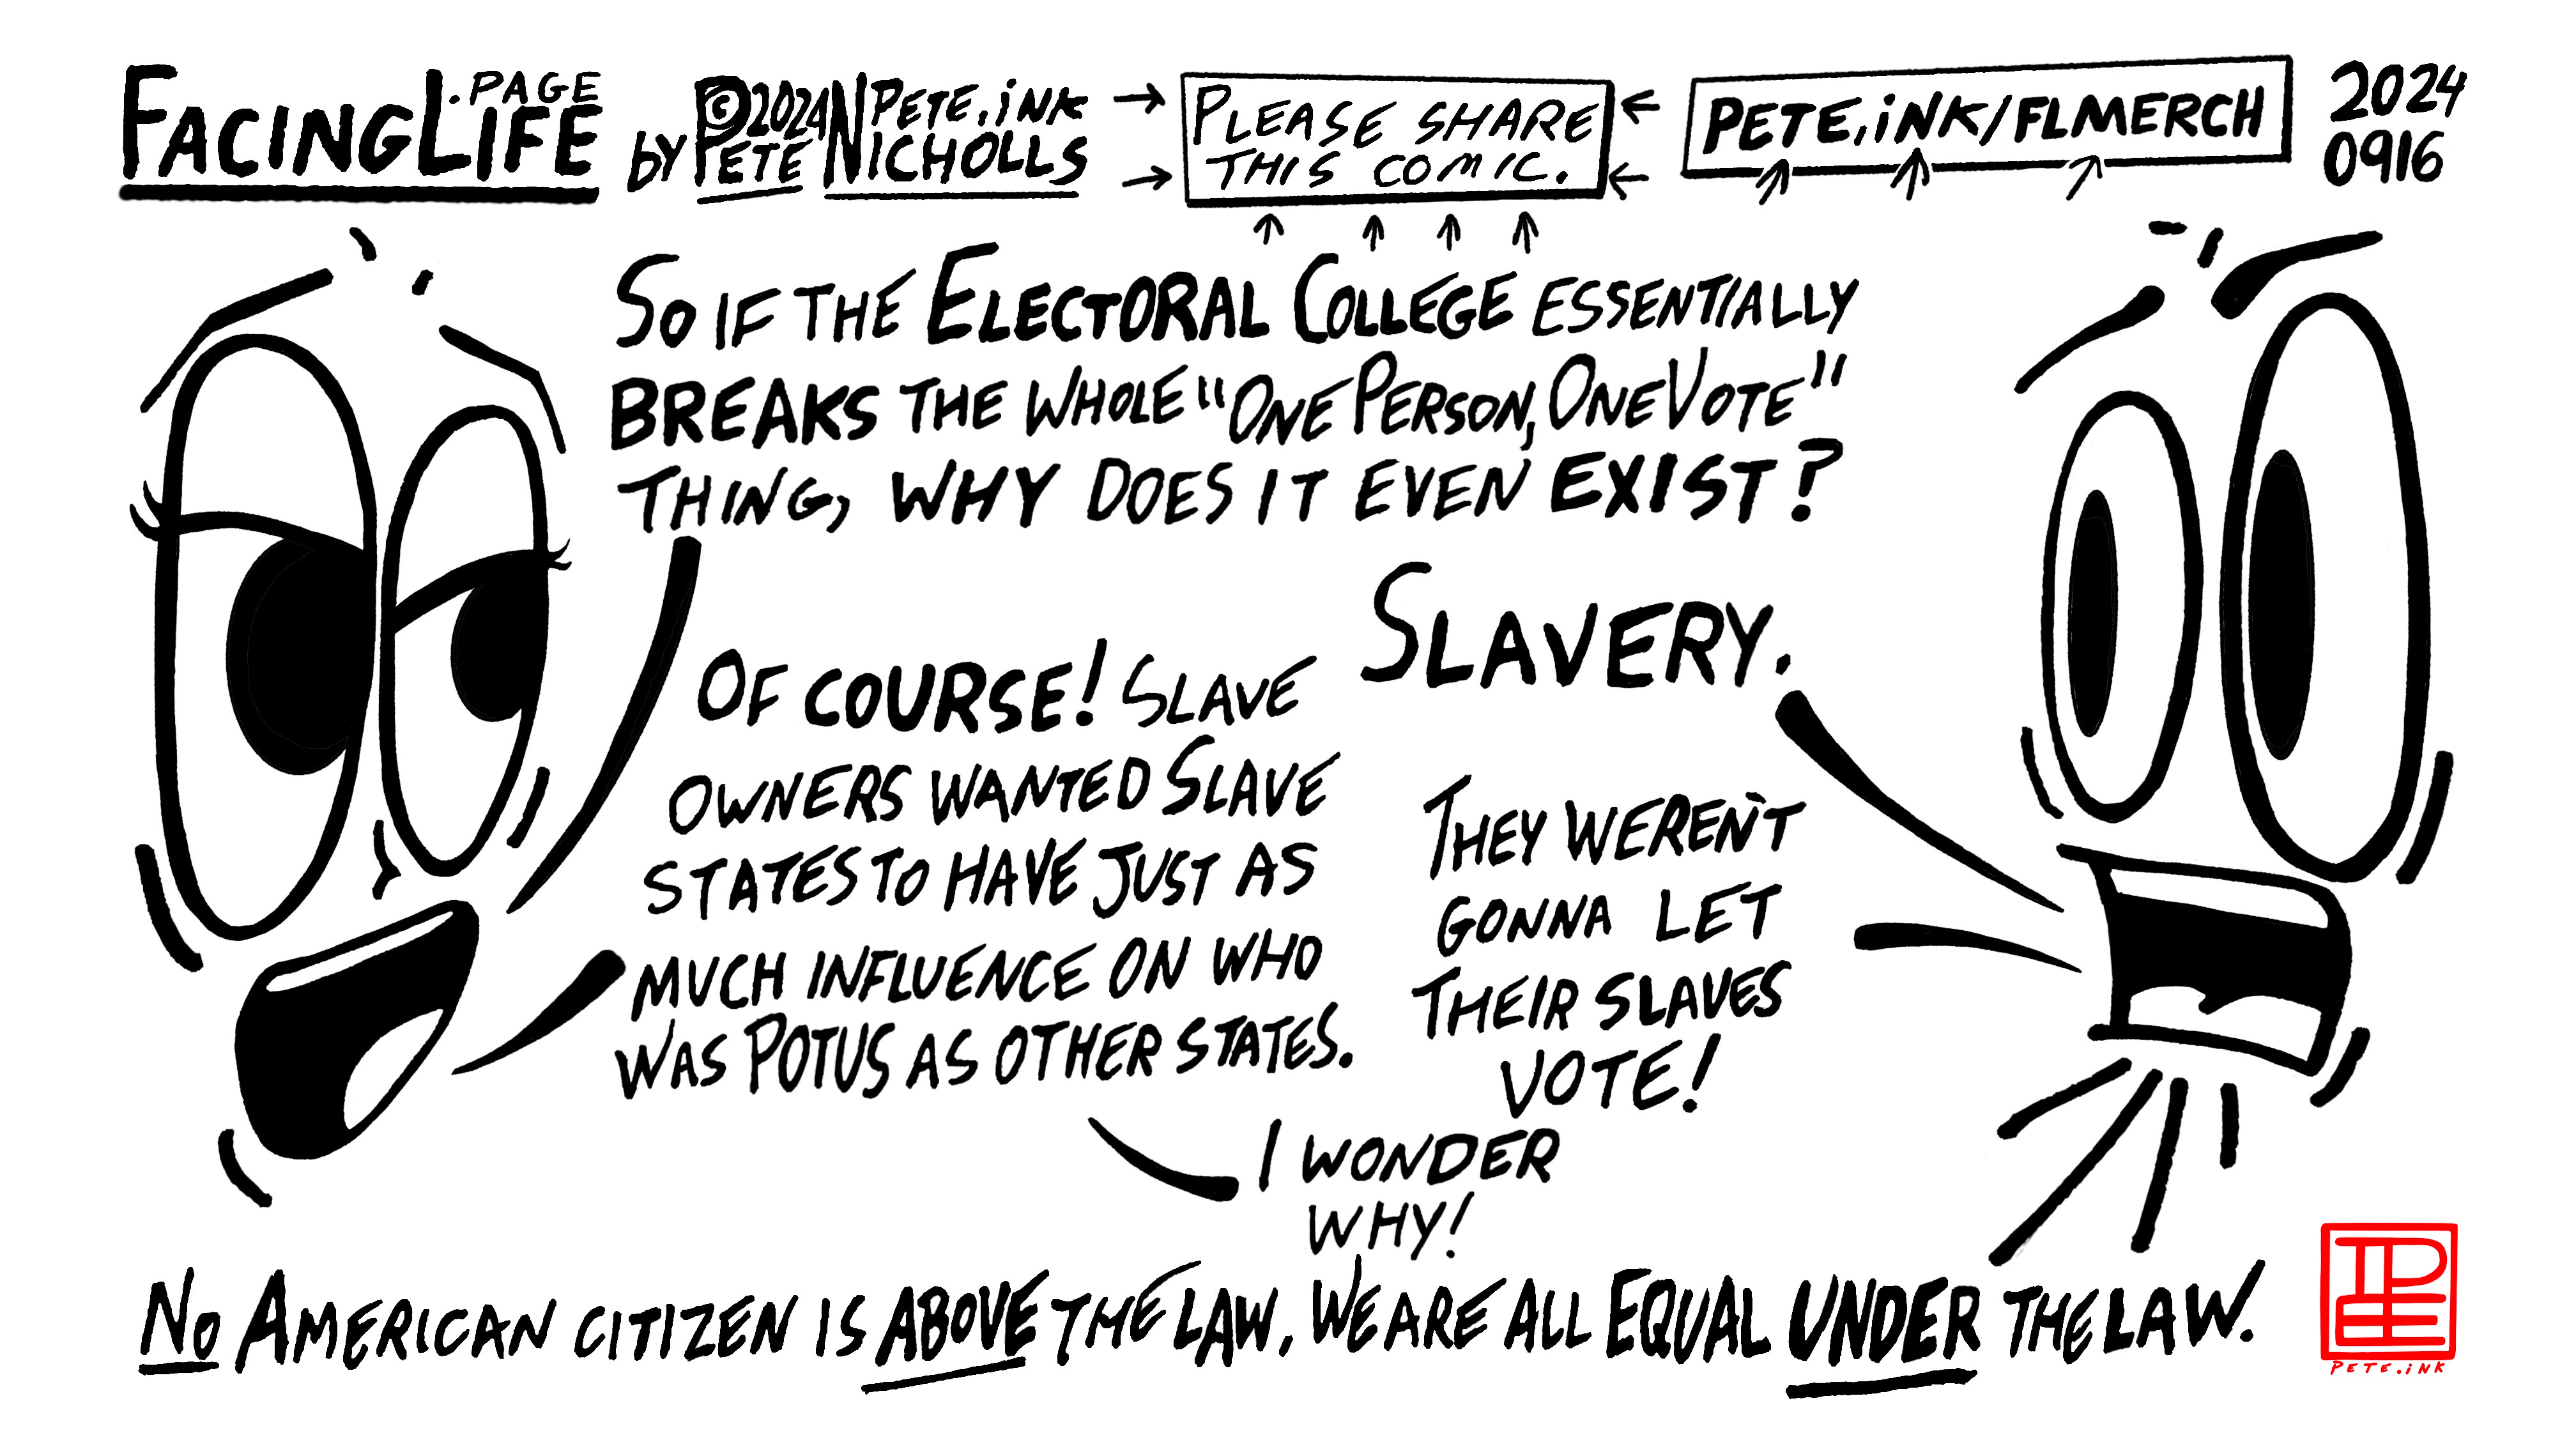 FACINGLIFE.PAGE
BY PETE NICHOLLS
©2024 PETE.INK
PLEASE SHARE
THIS COMIC.
PETE.INK/FLMERCH
2024
0916
SO IF THE ELECTORAL COLLEGE ESSENTIALLY
BREAKS THE WHOLE "ONE PERSON, ONE VOTE"
THING, WHY DOES IT EVEN EXIST?
SLAVERY.
OF COURSE! SLAVE
OWNERS WANTED SLAVE
STATES TO HAVE JUST AS
MUCH INFLUENCE ON WHO
WAS POTUS AS OTHER STATES.
THEY WEREN'T
GONNA LET
THEIR SLAVES
VOTE!
I WONDER
WHY!
NO AMERICAN CITIZEN IS ABOVE THE LAW. WE ARE ALL EQUAL UNDER THE LAW.
PETE.INK